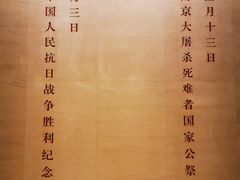 月十三日
京大屠杀死难者国家公祭
月三日
国人民抗日战争胜利纪念